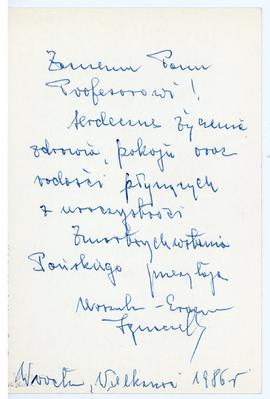 Panu
Profesorowi!
serdeczne życzenia
zdrowia, pokoju oraz
radości płynących
z uroczystości
Zmartwychwstania
Pańskiego przesyłają
Wrocław, Wielkanoc 1986 r